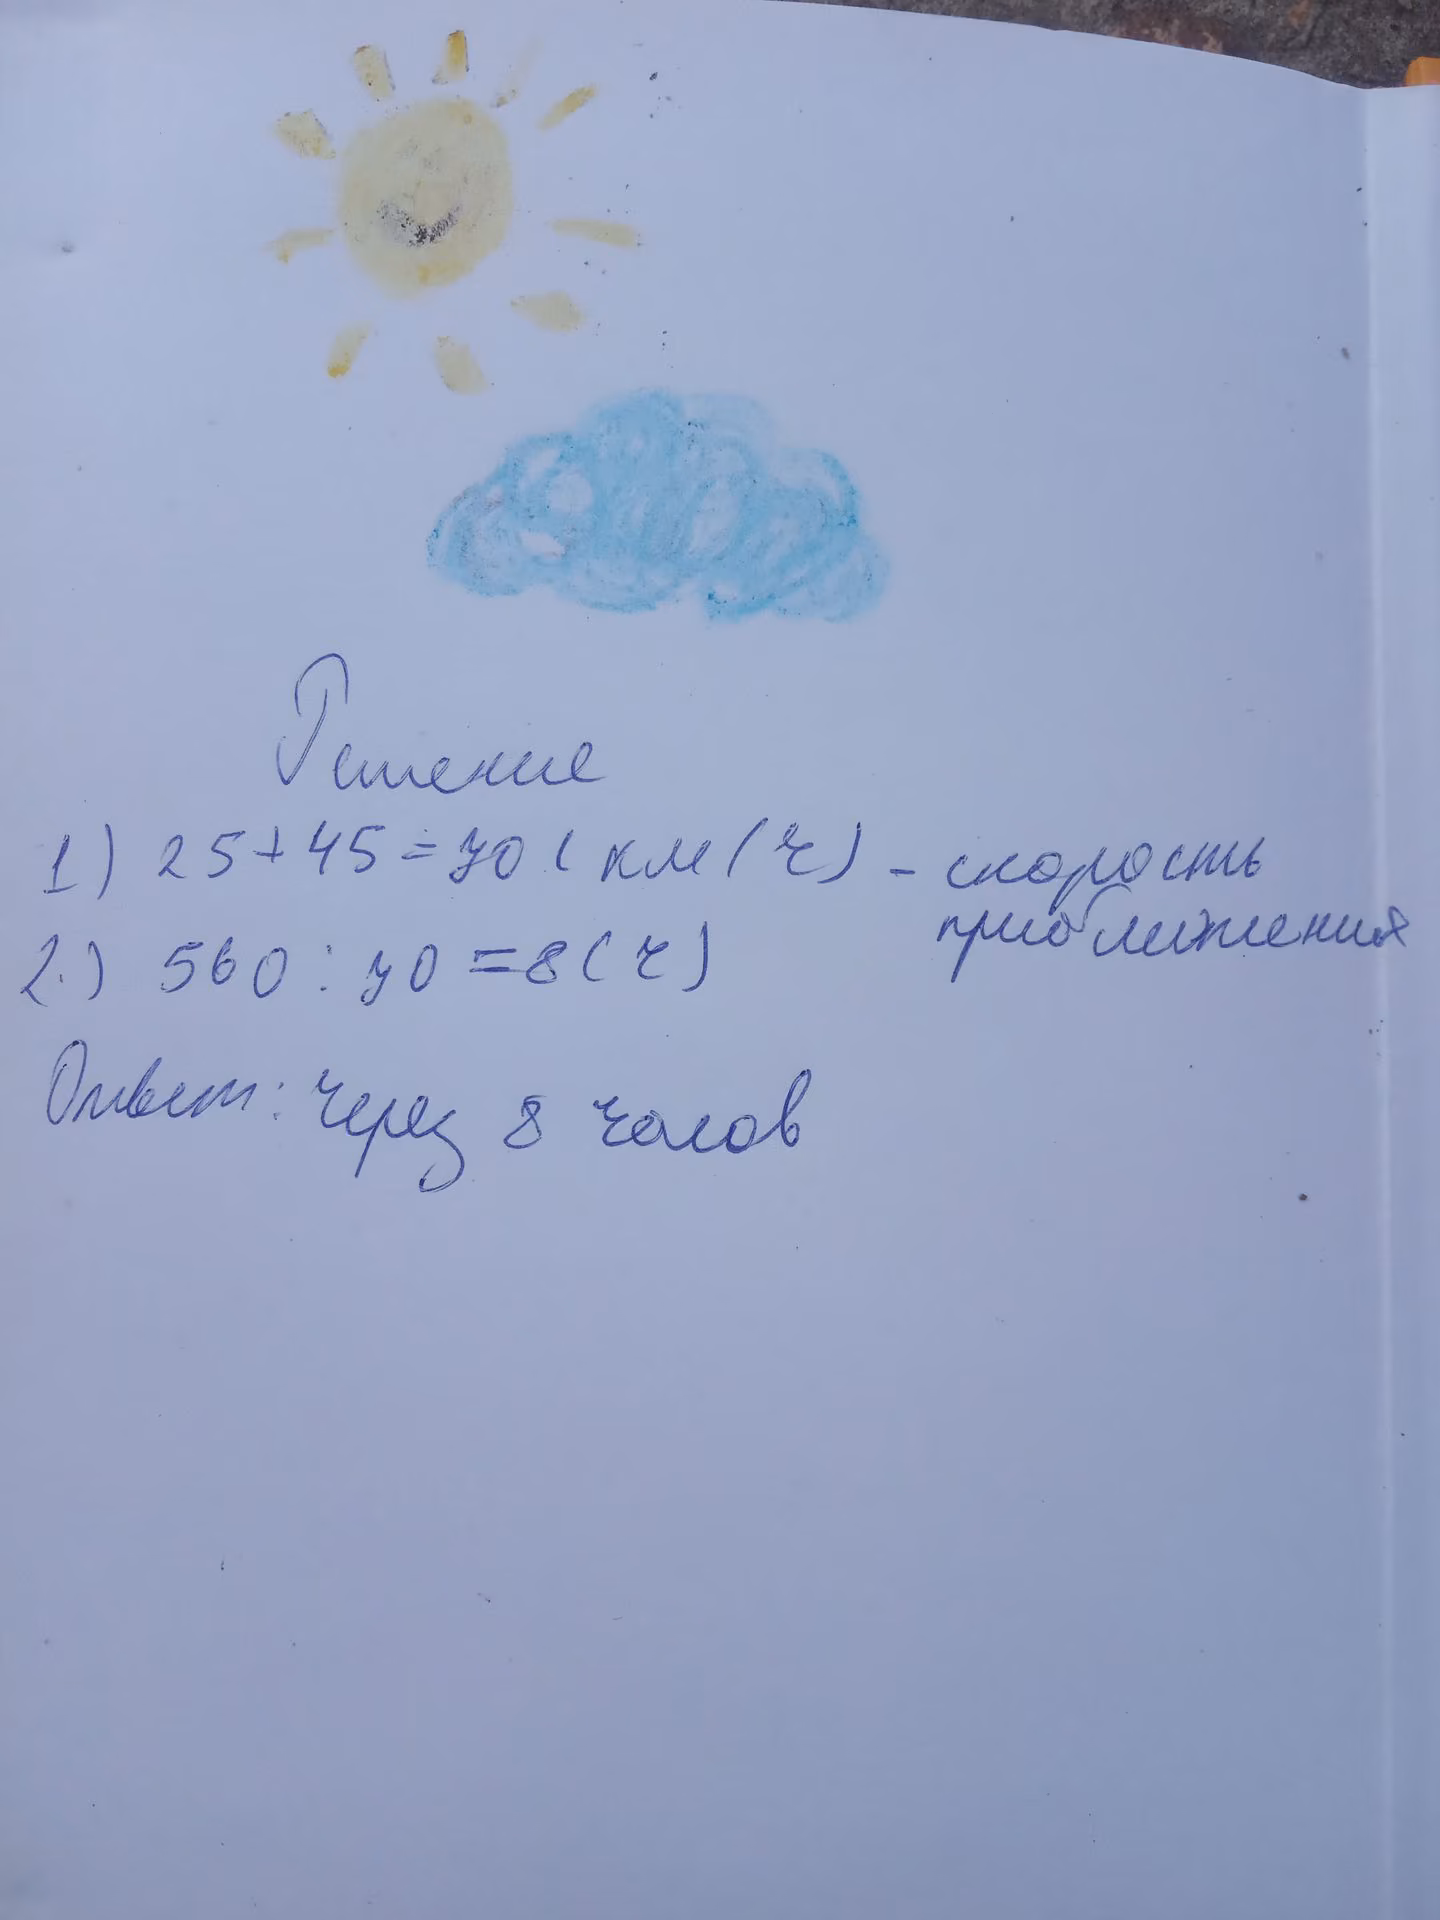 Решение
1) 25+45=70 (км/ч) - скорость
приближения
2.) 560 : 70 =8 (ч)
Ответ: через 8 часов